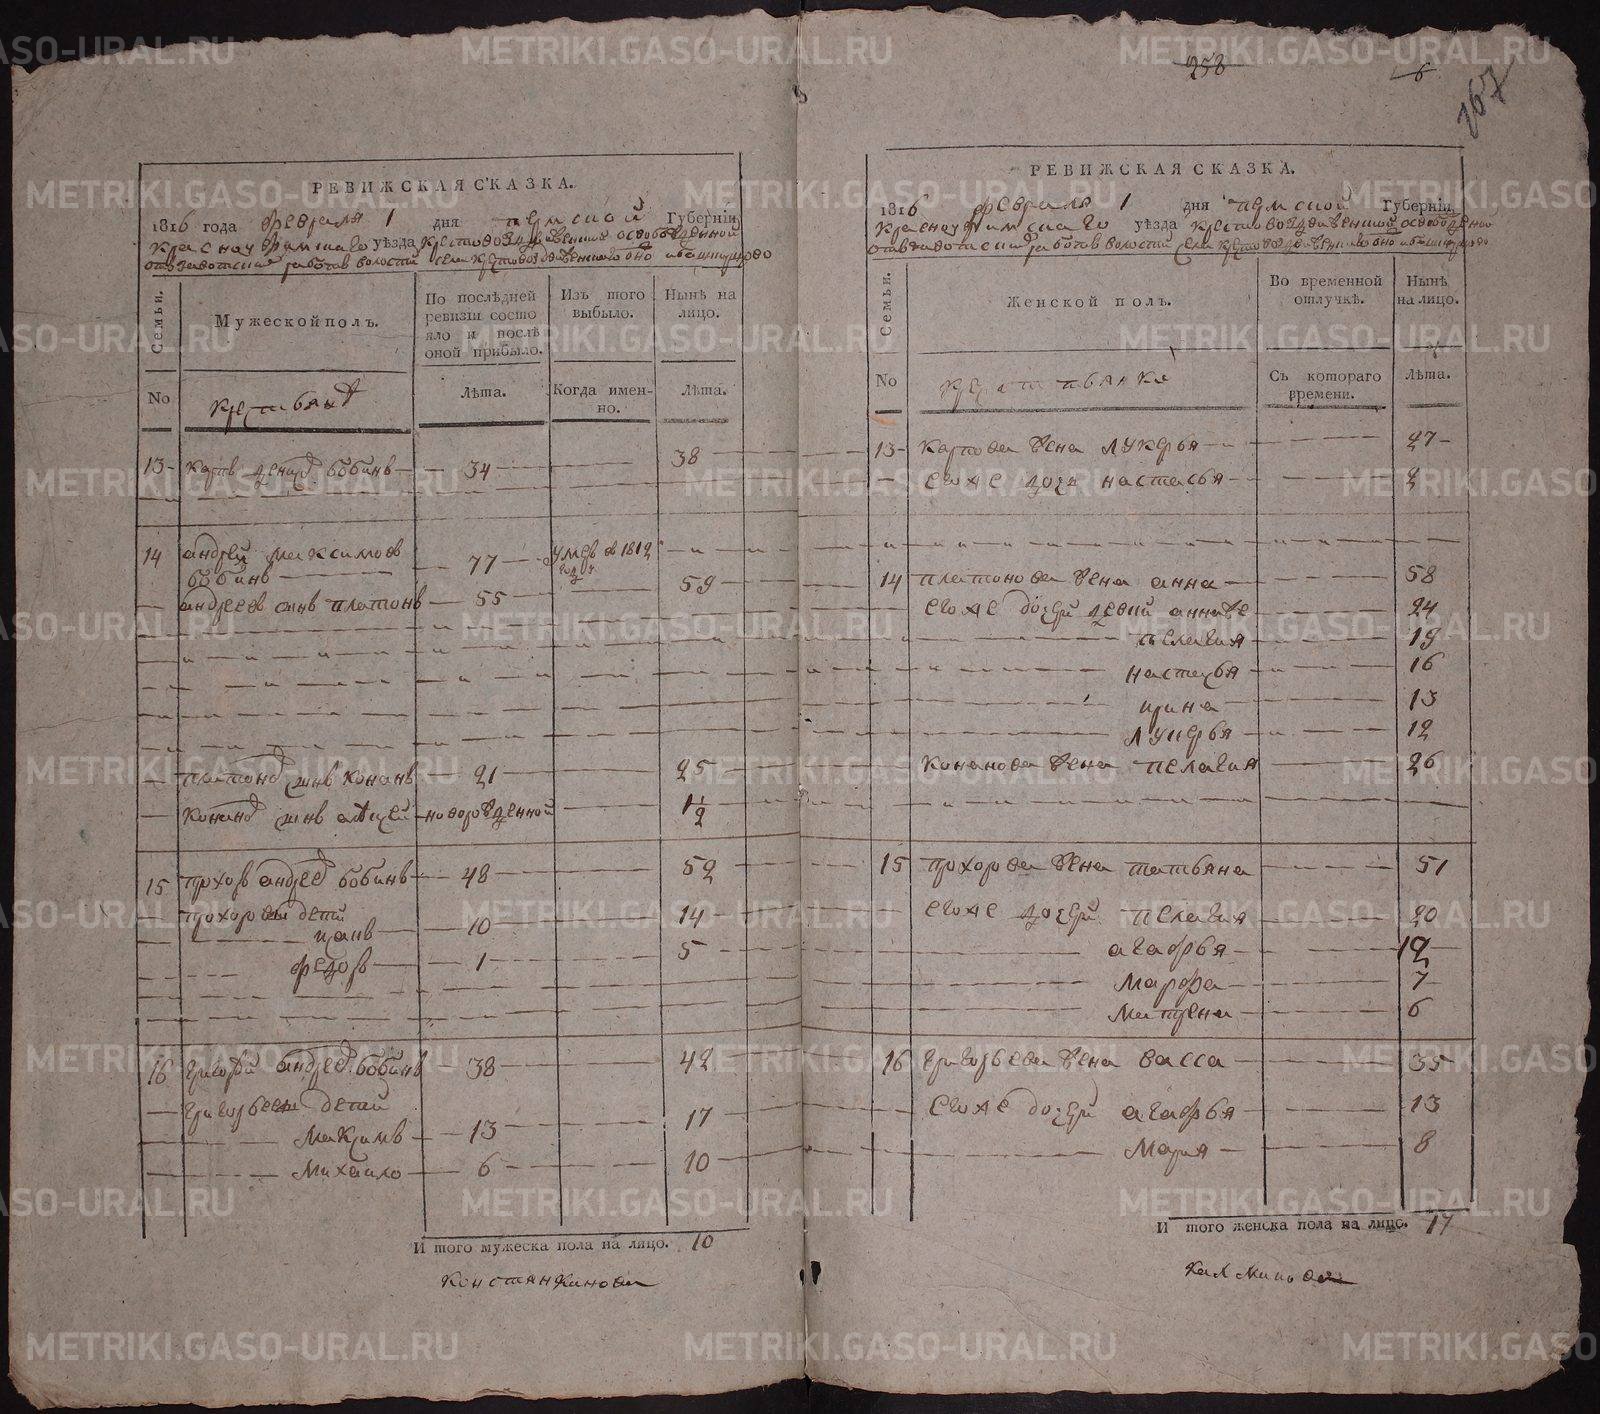 258
6
167
РЕВИЖСКАЯ СКАЗКА.
1816 года февраля 1 дня пермской Губерніи
красноуфимскаго уѣзда крестовоздвиженской освобожденной
отъ заводскихъ работъ волости села крестовоздвиженскаго
Семьи.
Мужеской полъ.
По послѣдней ревизіи состо
яло и послѣ оной прибыло.
Изъ того выбыло.
Нынѣ на лицо.
No
крестьянъ
Лѣта.
Когда имен-
но.
Лѣта.
13 карпъ бобинъ 34 38
14 андрей максимовъ
бобинъ 77 умеръ в 1812 году
андреевъ сынъ платонъ 55 59
платоновъ сынъ кононъ 21 25
кононовъ сынъ новорожденной 1 1/2
15 прохоръ андреевъ бобинъ 48 52
прохоровы дети
иванъ 10 14
федоръ 1 5
16 григорей андреевъ бобинъ 38 42
григорьевы дети
Максимъ 13 17
Михайло 6 10
И того мужеска пола на лицо. 10
РЕВИЖСКАЯ СКАЗКА.
1816 февраля 1 дня пермской Губерніи
красноуфимскаго уѣзда крестовоздвиженской освобожденной
отъ заводскихъ работъ волости села крестовоздвиженскаго
Семьи.
Женской полъ.
Во временной
отлучкѣ.
Нынѣ
на лицо.
No
крестьянка
Съ котораго
времени.
Лѣта.
13 карпова жена лукерья 27
ево же дочь настасья 2
14 платонова жена анна 58
ево же дочери 24
пелагия 19
настасья 16
ирина 13
лукерья 12
кононова жена пелагия 26
15 прохорова жена татьяна 51
ево же дочери пелагия 20
агафья 12
Марфа 7
Матрена 6
16 григорьева жена васса 35
ево же дочери агафья 13
Мария 8
И того женска пола на лицо. 17